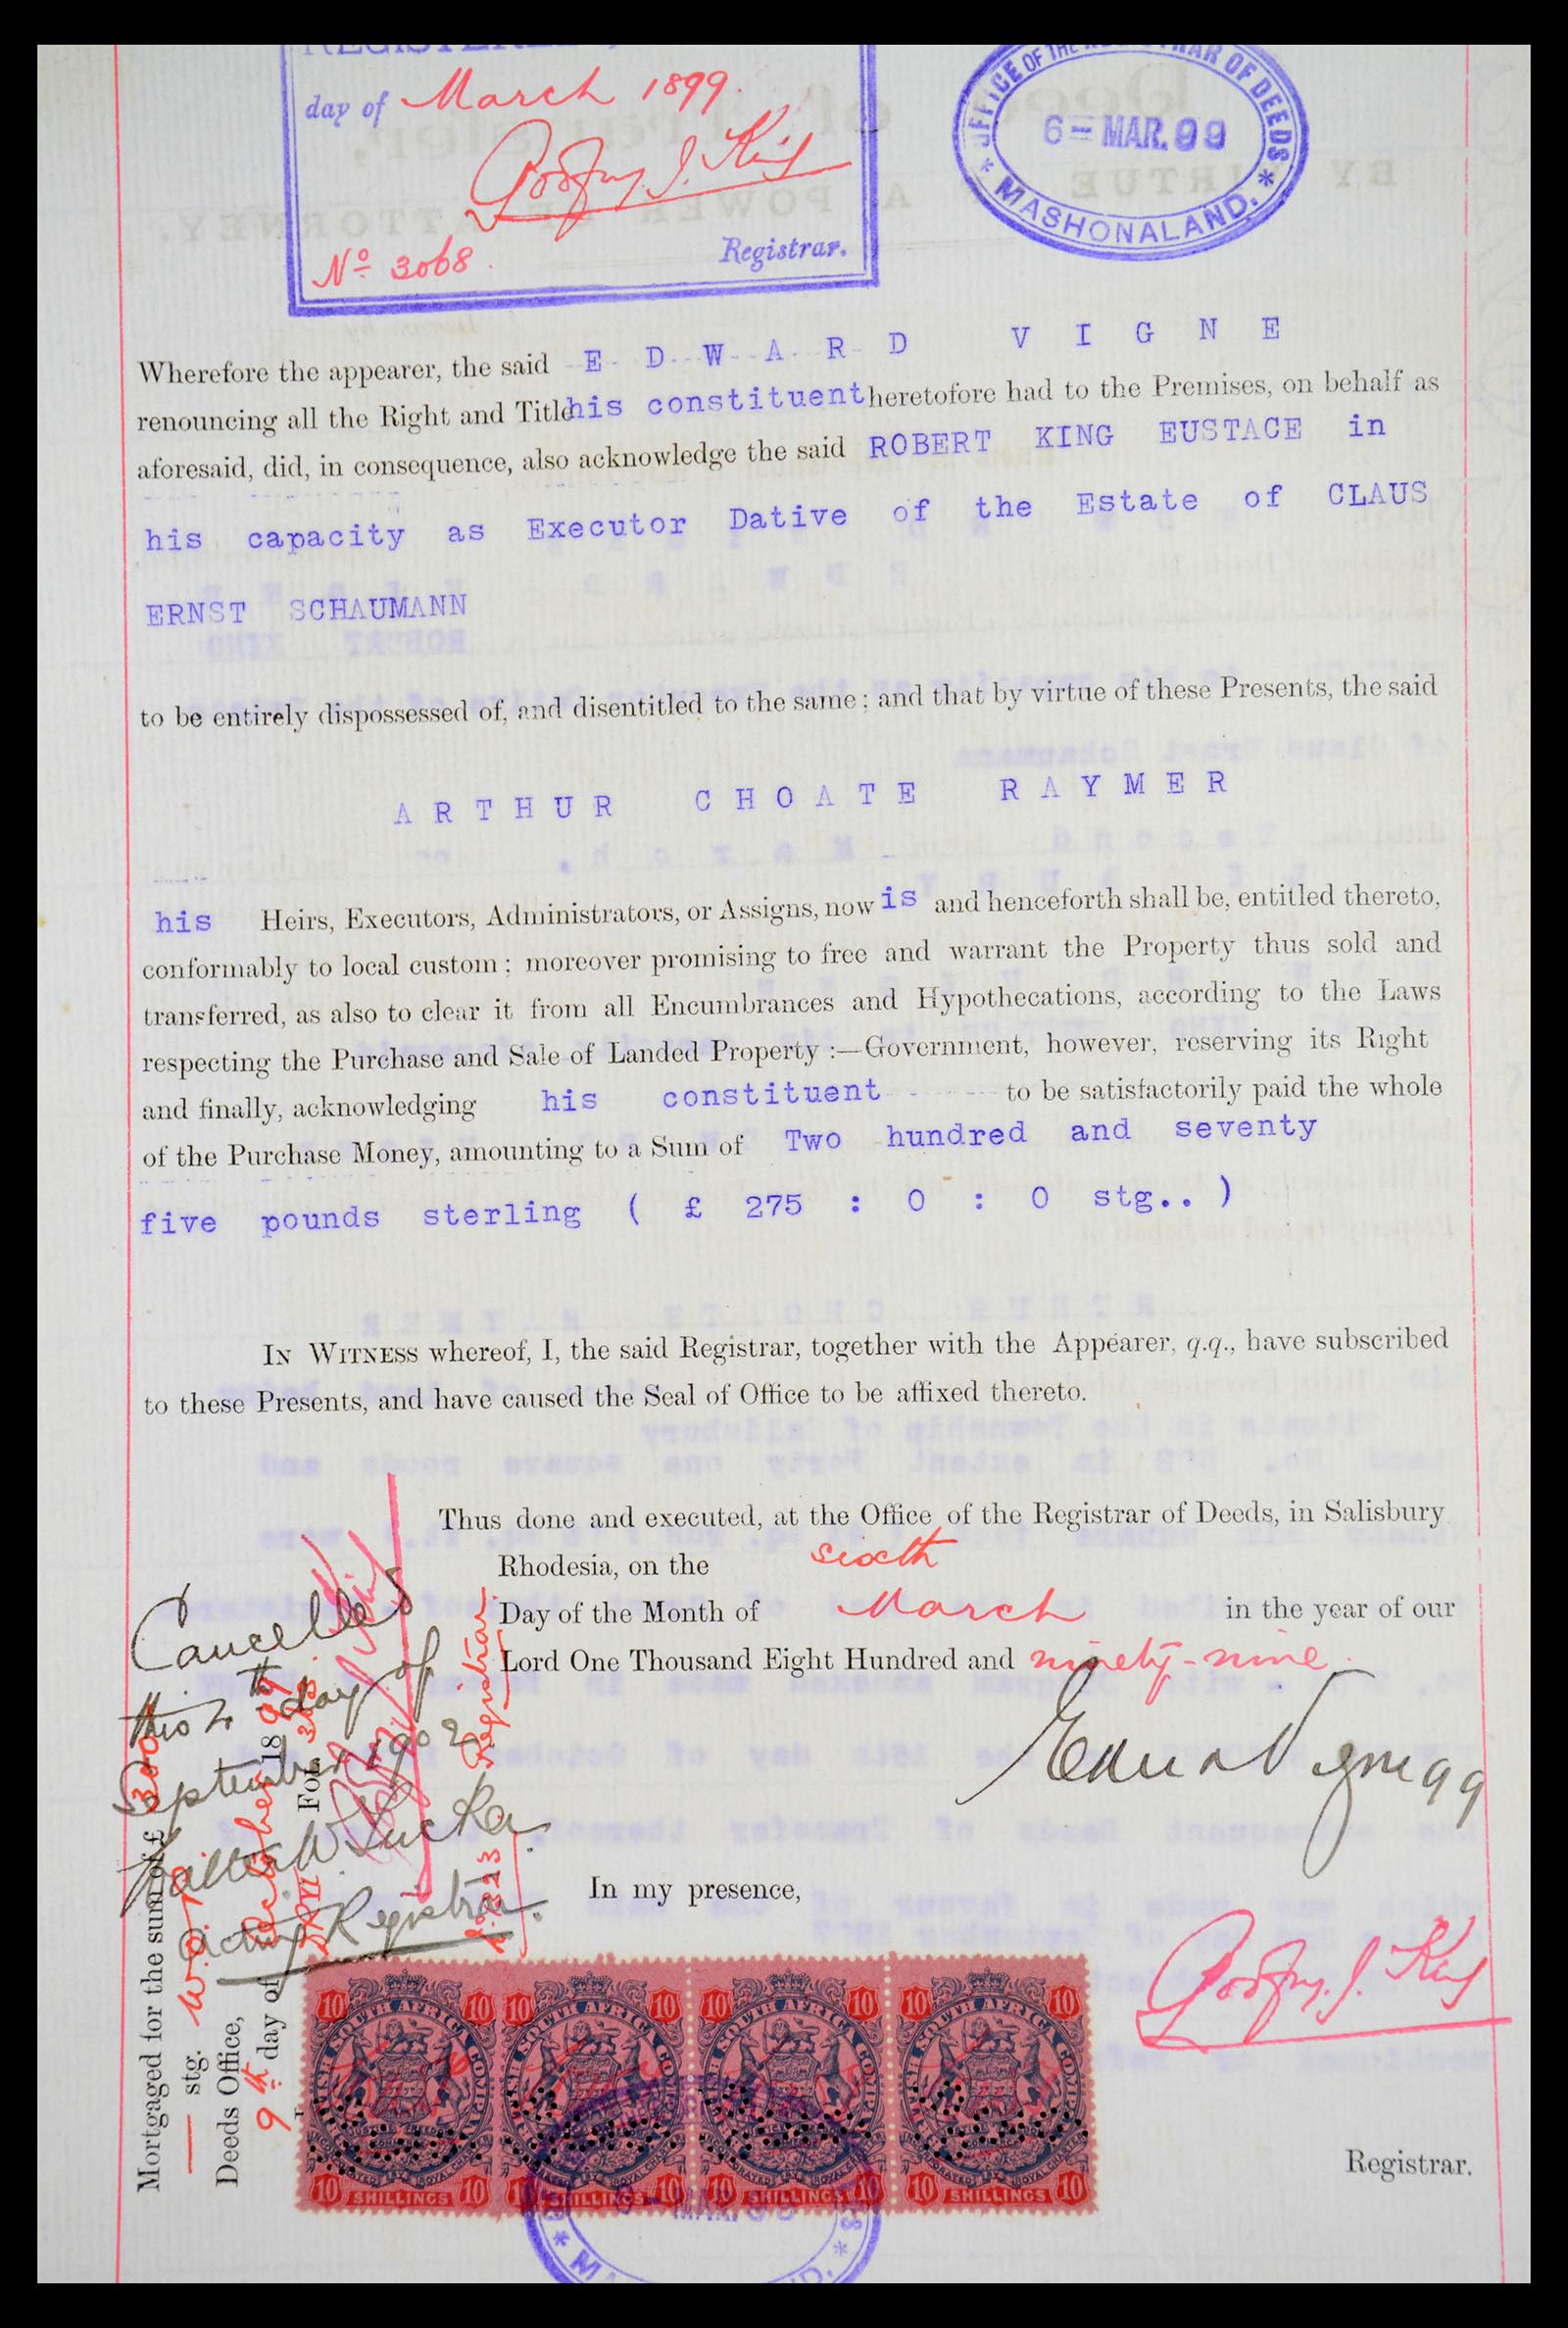 day of March 1899.
Godfrey J. King
Registrar.
No 3068.
OFFICE OF THE REGISTRAR OF DEEDS
6 - MAR. 99
* MASHONALAND. *
Wherefore the appearer, the said E D W A R D V I G N E
renouncing all the Right and Title his constituent heretofore had to the Premises, on behalf as
aforesaid, did, in consequence, also acknowledge the said ROBERT KING EUSTACE in
his capacity as Executor Dative of the Estate of CLAUS
ERNST SCHAUMANN
to be entirely dispossessed of, and disentitled to the same; and that by virtue of these Presents, the said
A R T H U R C H O A T E R A Y M E R
his Heirs, Executors, Administrators, or Assigns, now is and henceforth shall be, entitled thereto,
conformably to local custom; moreover promising to free and warrant the Property thus sold and
transferred, as also to clear it from all Encumbrances and Hypothecations, according to the Laws
respecting the Purchase and Sale of Landed Property :—Government, however, reserving its Right
and finally, acknowledging his constituent - - - - to be satisfactorily paid the whole
of the Purchase Money, amounting to a Sum of Two hundred and seventy
five pounds sterling ( £ 275 : 0 : 0 stg.. )
IN WITNESS whereof, I, the said Registrar, together with the Appearer, q.q., have subscribed
to these Presents, and have caused the Seal of Office to be affixed thereto.
Thus done and executed, at the Office of the Registrar of Deeds, in Salisbury
Rhodesia, on the sixth
Day of the Month of March in the year of our
Lord One Thousand Eight Hundred and ninety-nine.
Edward Vigne qq
In my presence,
Godfrey J. King
Registrar.
Cancelled
this day of
September 1902
Acting Registrar.
Mortgaged for the sum of £ 300
stg.
Deeds Office,
9th day of October 1899
Registrar.
10 10 10 10 10 10 10 10
SOUTH AFRICA COMPANY
10 SHILLINGS 10 10 SHILLINGS 10 10 SHILLINGS 10 10 SHILLINGS 10